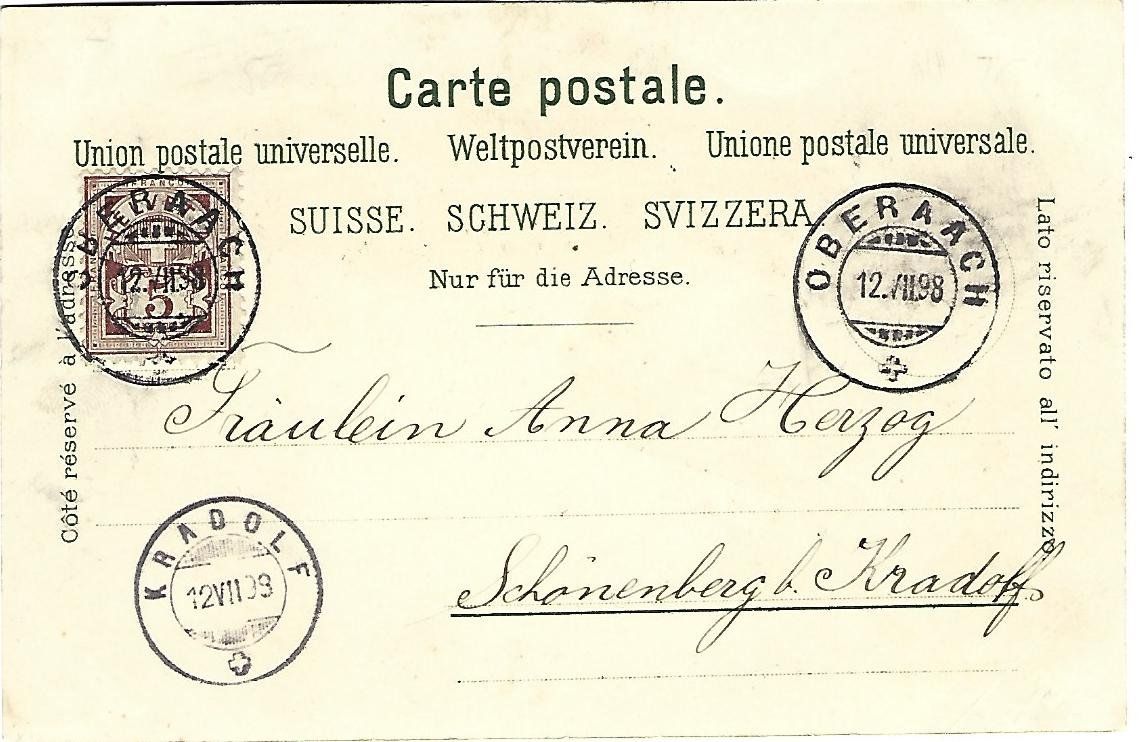 Carte postale.
Union postale universelle. Weltpostverein. Unione postale universale.
SUISSE. SCHWEIZ. SVIZZERA
Nur für die Adresse.
Côté réservé à l'adresse
Lato riservato all' indirizzo
FRANCO
5
OBERAACH
12.VII.98
OBERAACH
12.VII.98
Fräulein Anna Herzog
KRADOLF
12VII98
Schönenberg b. Kradolf.